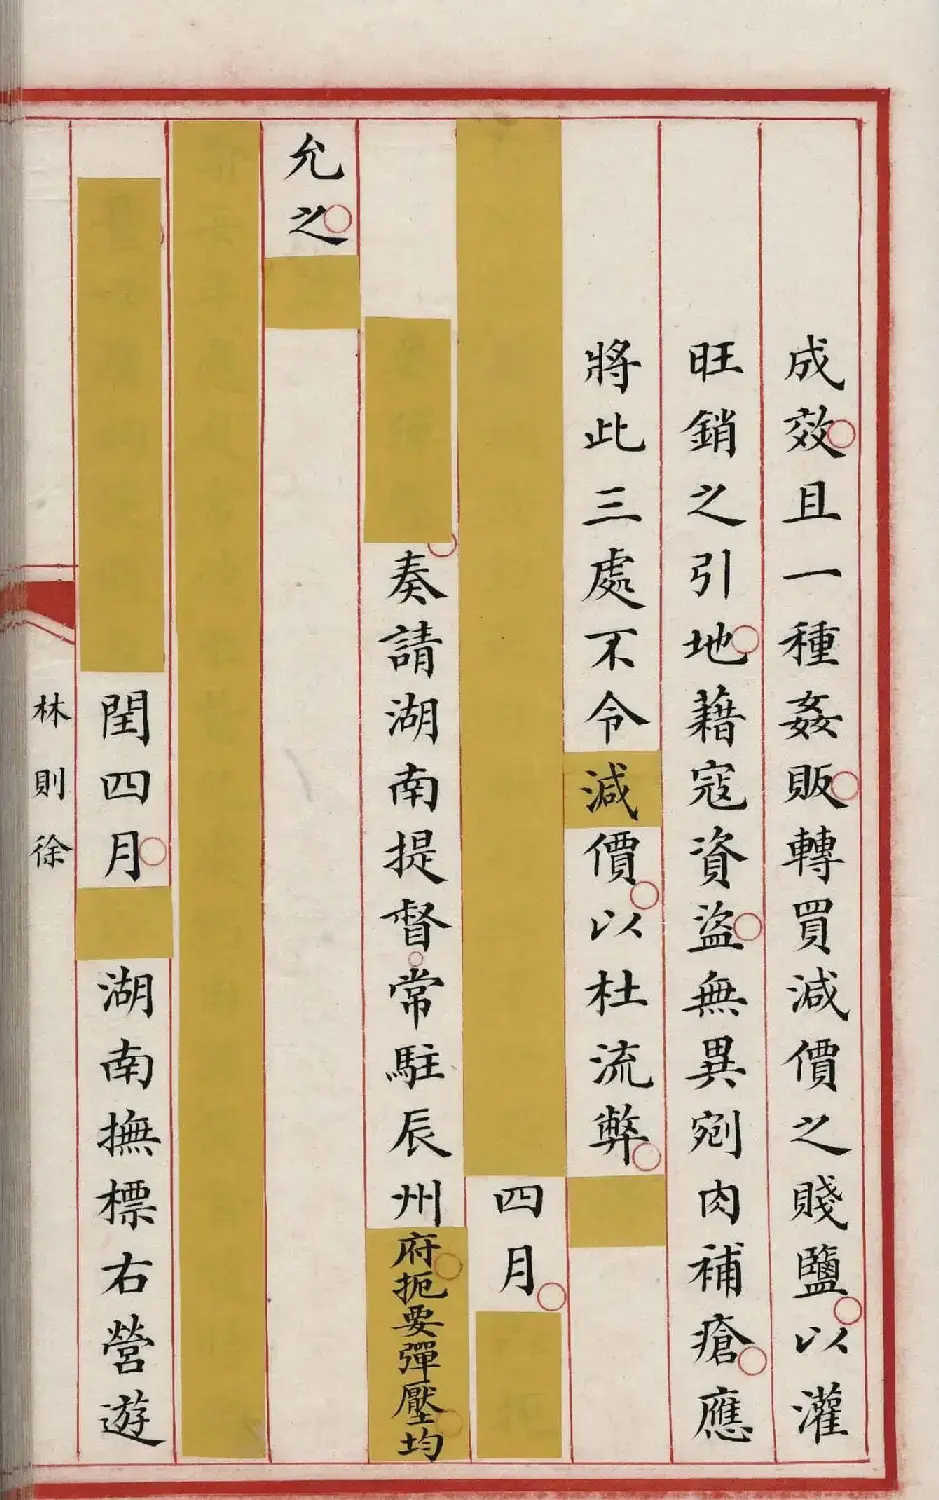 成效且一種姦販轉買減價之賤鹽以灌
旺銷之引地藉寇資盜無異剜肉補瘡應
將此三處不令減價以杜流弊
四月
奏請湖南提督常駐辰州府扼要彈壓均
允之
閏四月湖南撫標右營遊
林則徐